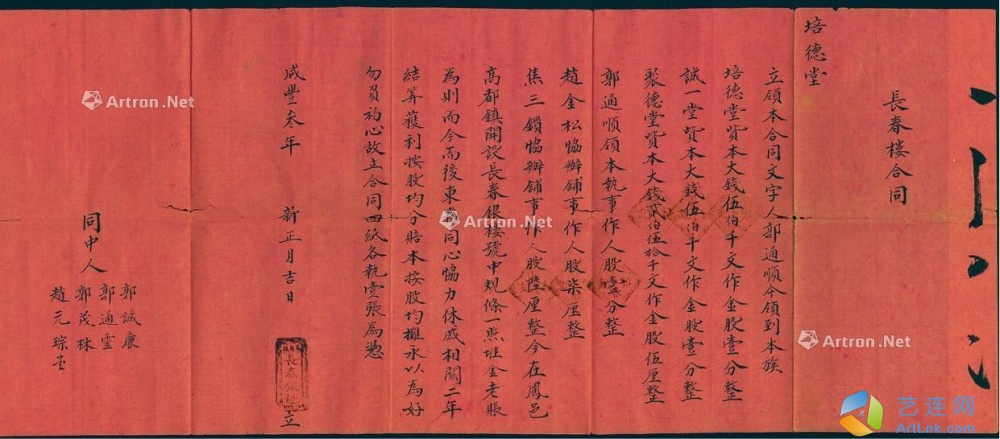 長春樓合同
培德堂
立領本合同文字人郭通順今領到本族
培德堂貲本大錢伍伯千文作金股壹分整
誠一堂貲本大錢伍伯千文作金股壹分整
聚德堂貲本大錢貳伯伍拾千文作金股伍厘整
郭通順領本執事作人股壹分整
趙金松協辦舖事作人股柒厘整
焦三鎖協辦舖事作人股陸厘整今在鳳邑
高都鎮開設長春銀樓號中規條一照堆金老賬
為則而今而後東夥同心協力休戚相關二年
結算獲利按股均分賠本按股均攤永以為好
勿負初心故立合同四紙各執壹張為憑
咸豐叁年 新正月吉日 立
長春銀樓
同中人
郭誠廉
郭通靈
郭茂林
趙元琮
Artron.Net
Artron.Net
Artron.Net
Artron.Net
艺连网
ArtLnk.com